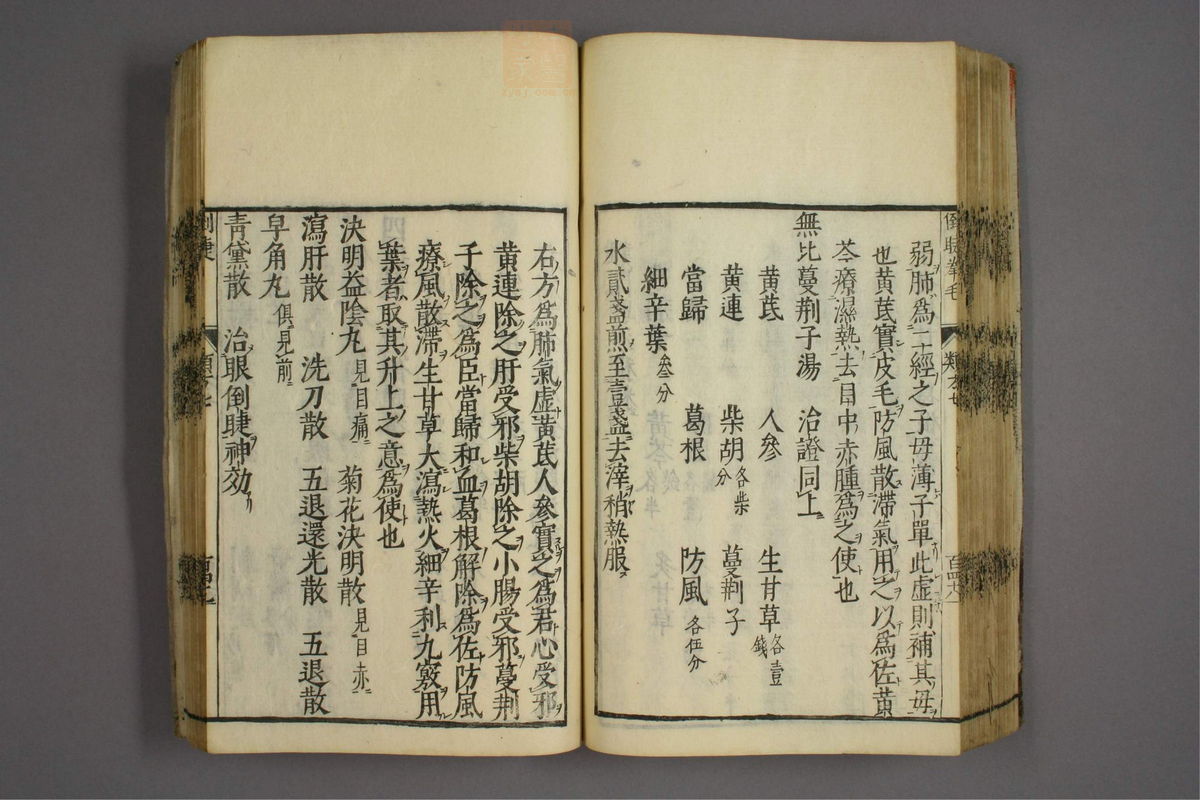 弱肺爲二經之子母薄子單此虛則補其母
也黄芪實皮毛防風散滯氣用之以爲佐黄
芩療濕熱去目中赤腫爲之使也
無比蔓荆子湯　治證同上
黄芪　人參　生甘草各壹錢
黄連　柴胡各柒分　蔓荆子
當歸　葛根　防風各伍分
細辛葉叁分
水貳盞煎至壹盞去滓稍熱服
右方爲肺氣虛黄芪人參實之爲君心受邪
黄連除之肝受邪柴胡除之小腸受邪蔓荆
子除之爲臣當歸和血葛根解除爲佐防風
療風散滯生甘草大瀉熱火細辛利九竅用
葉者取其升上之意爲使也
決明益陰丸見目痛　菊花決明散見目赤
瀉肝散　洗刀散　五退還光散　五退散
皁角丸俱見前
青黛散　治眼倒睫神効